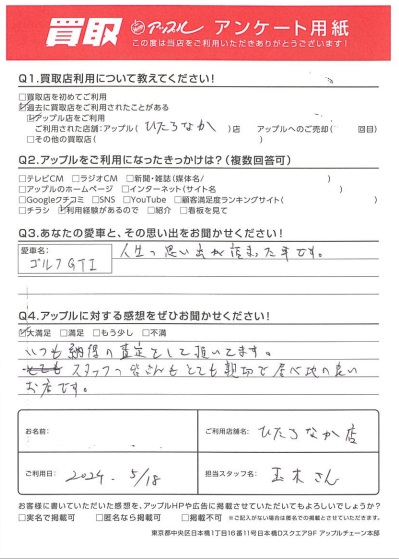 買取 アップル アンケート用紙
この度は当店をご利用いただきありがとうございます!
Q1.買取店利用について教えてください!
□買取店を初めてご利用
☑過去に買取店をご利用されたことがある
☑アップル店をご利用
ご利用された店舗:アップル( ひたちなか )店 アップルへのご売却( 回目)
□その他の買取店( )
Q2.アップルをご利用になったきっかけは?(複数回答可)
□テレビCM □ラジオCM □新聞・雑誌(媒体名/ )
□アップルのホームページ □インターネット(サイト名 )
□Googleクチコミ □SNS □YouTube □顧客満足度ランキングサイト( )
□チラシ ☑利用経験があるので □紹介 □看板を見て
Q3.あなたの愛車と、その思い出をお聞かせください!
愛車名:
ゴルフGTI
人生の思い出が詰まった車です。
Q4.アップルに対する感想をぜひお聞かせください!
☑大満足 □満足 □もう少し □不満
いつも納得の査定をして頂いてます。
とても スタッフの皆さんもとても親切で居心地の良い
お店です。
お名前:
ご利用店舗名: ひたちなか店
ご利用日: 2024. 5/18
担当スタッフ名: 玉木さん
お客様に書いていただいた感想を、アップルHPや広告に掲載させていただいてもよろしいでしょうか?
□実名で掲載可 □匿名なら掲載可 □掲載不可 ※ご記入がない場合は匿名での掲載とさせていただきます。
東京都中央区日本橋1丁目16番11号日本橋Dスクエア9F アップルチェーン本部